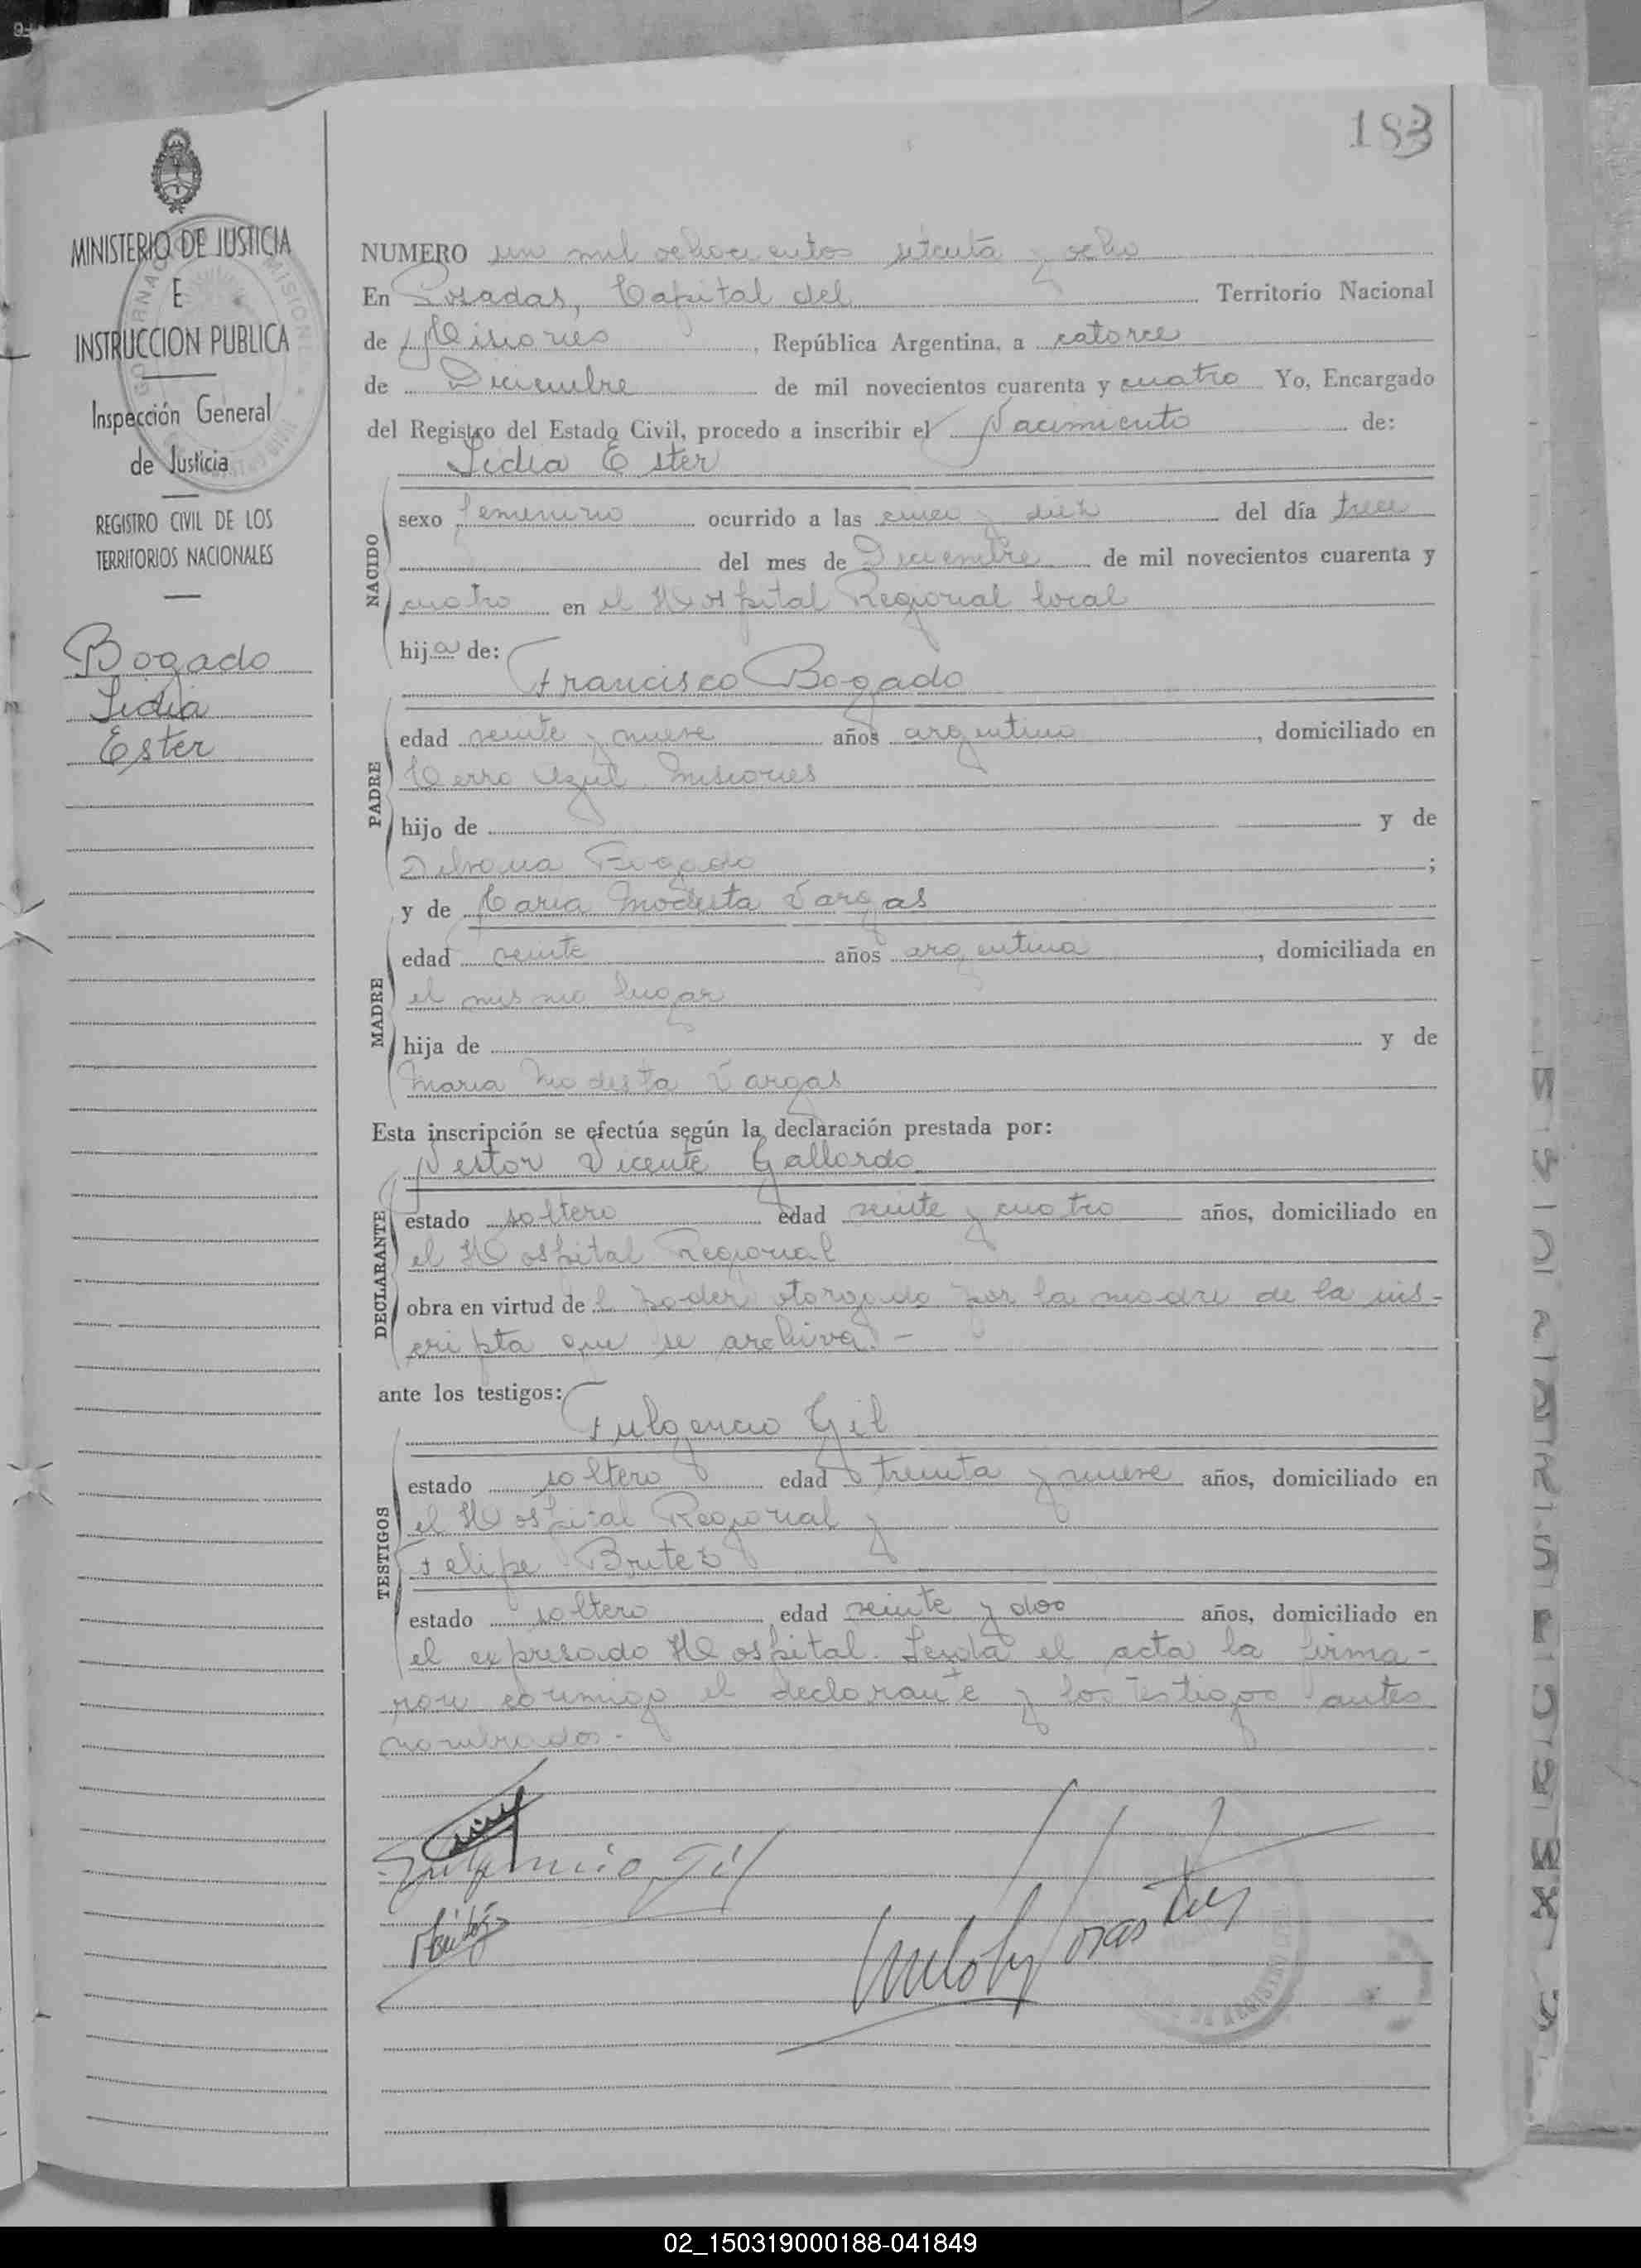 183
MINISTERIO DE JUSTICIA
E
INSTRUCCION PUBLICA
Inspección General
de Justicia
REGISTRO CIVIL DE LOS
TERRITORIOS NACIONALES
Bogado
Lidia
Ester
NUMERO un mil ochocientos setenta y ocho
En Posadas, Capital del Territorio Nacional
de Misiones, República Argentina, a catorce
de Diciembre de mil novecientos cuarenta y cuatro Yo, Encargado
del Registro del Estado Civil, procedo a inscribir el Nacimiento de:
Lidia Ester
NACIDO
sexo femenino ocurrido a las cinco y diez del día trece
del mes de Diciembre de mil novecientos cuarenta y
cuatro en el Hospital Regional local
hija de:
Francisco Bogado
PADRE
edad veinte y nueve años argentino, domiciliado en
Cerro Azul, Misiones
hijo de y de
Bogado;
y de Maria Modesta Vargas
MADRE
edad veinte años argentina, domiciliada en
el mismo lugar
hija de y de
Maria Modesta Vargas
Esta inscripción se efectúa según la declaración prestada por:
Nestor Vicente Gallardo
DECLARANTE
estado soltero edad veinte y cuatro años, domiciliado en
el Hospital Regional
obra en virtud del poder otorgado por la madre de la ins-
cripta que se archiva.-
ante los testigos:
Fulgencio Gil
TESTIGOS
estado soltero edad treinta y nueve años, domiciliado en
el Hospital Regional y
Felipe Britez
estado soltero edad veinte y dos años, domiciliado en
el expresado Hospital. Leida el acta la firma-
ron conmigo el declarante y los testigos antes
nombrados.-
Fulgencio Gil
02_150319000188-041849